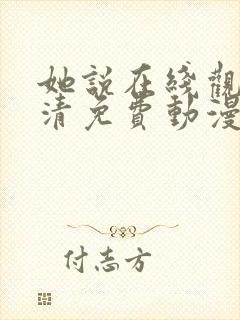 她説在綫觀
清免費動漫
付志方